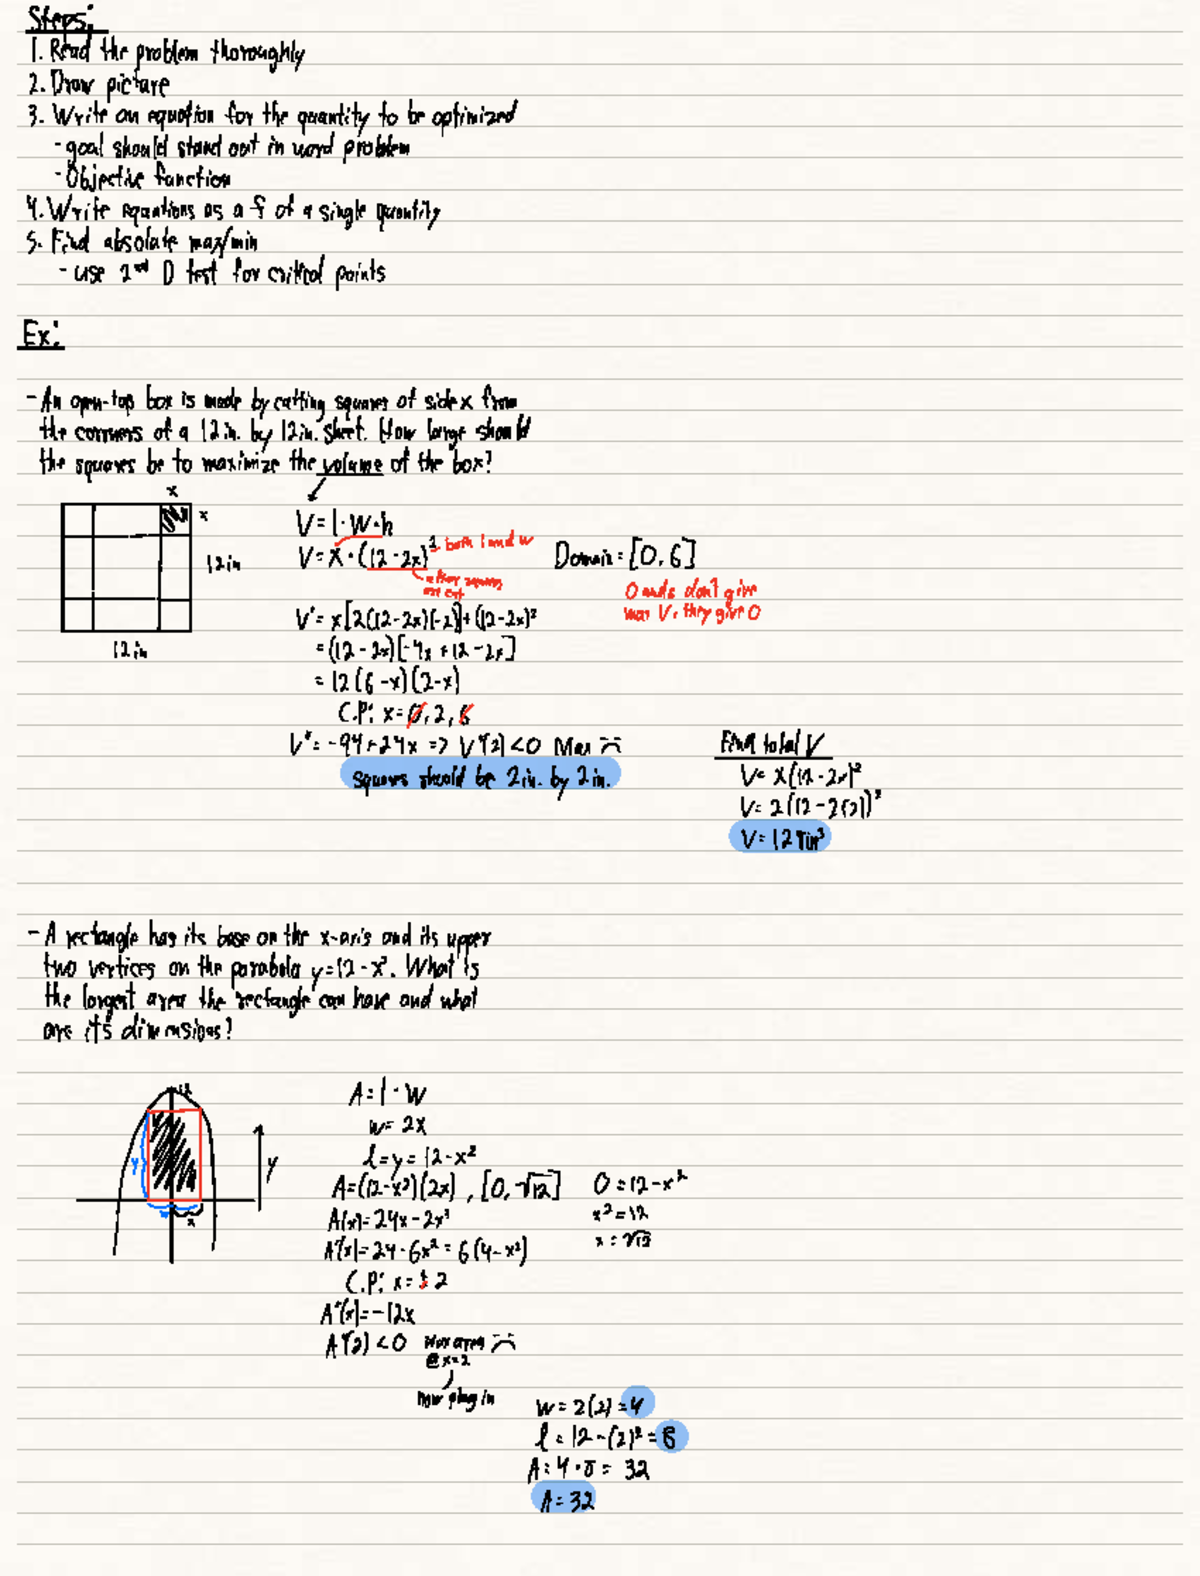 Steps:
1. Read the problem thoroughly
2. Draw picture
3. Write an equation for the quantity to be optimized
- goal should stand out in word problem
- Objective function
4. Write equations as a f of a single quantity
5. Find absolute max/min
- use 2nd D test for critical points
Ex:
- An open-top box is made by cutting squares of side x from
the corners of a 12in. by 12in. sheet. How large should
the squares be to maximize the volume of the box?
x
x
12in
12in
V = l · w · h
V = x · (12-2x)² both l and w
after squares
are cut
Domain = [0, 6]
0 and 6 don't give
max V, they give 0
V' = x[2(12-2x)(-2)] + (12-2x)²
= (12-2x)[-4x + 12 - 2x]
= 12(6-x)(2-x)
C.P: x = 0, 2, 6
V" = -94+24x => V"(2) < 0 Max
squares should be 2in. by 2in.
Find total V
V = x(12-2x)²
V = 2(12-2(2))²
V = 128in³
- A rectangle has its base on the x-axis and its upper
two vertices on the parabola y=12-x². What is
the largest area the rectangle can have and what
are it's dimensions?
12
y
y
x
A = l · w
w = 2x
l = y = 12-x²
A = (12-x²)(2x), [0, √12]
0 = 12-x²
x² = 12
x = √12
A(x) = 24x - 2x³
A'(x) = 24-6x² = 6(4-x²)
C.P: x = ± 2
A"(x) = -12x
A"(2) < 0 Max area
@ x=2
now plug in
w = 2(2) = 4
l = 12-(2)² = 8
A = 4 · 8 = 32
A = 32